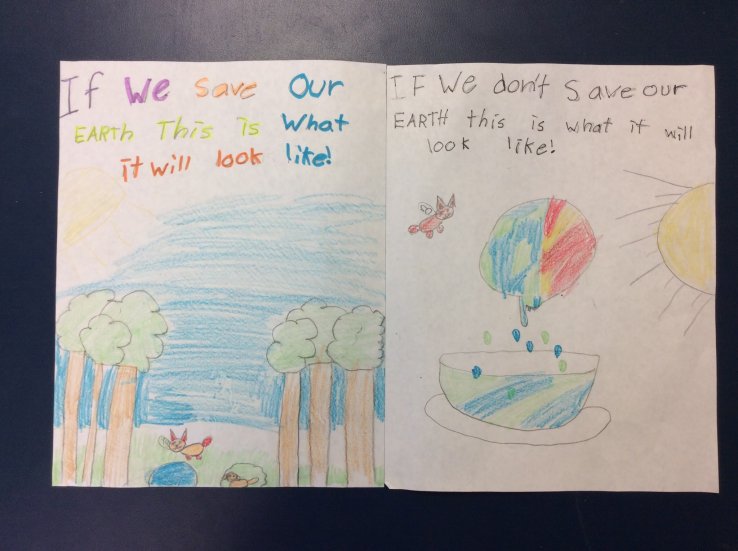 If We Save Our
EARTH This is What
it will look like!
IF We don't Save our
EARTH this is what it will
look like!